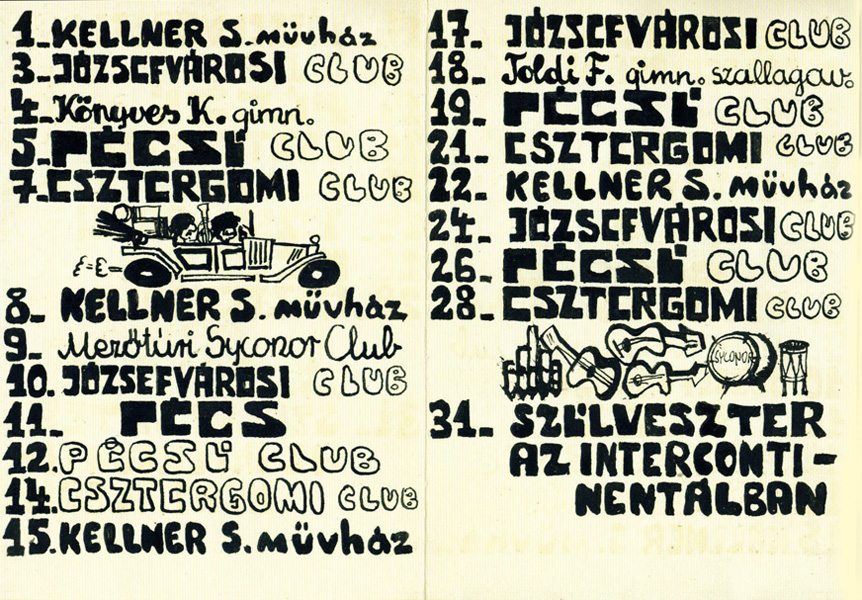 1_KELLNER S. művház
3_JÓZSEFVÁROSI CLUB
4_Könyves K. gimn.
5_PÉCSI CLUB
7_ESZTERGOMI CLUB
8_ KELLNER S. művház
9_ Mezőtúri Syconor Club
10. JÓZSEFVÁROSI CLUB
11_ PÉCS
12. PÉCSI CLUB
14. ESZTERGOMI CLUB
15. KELLNER S. művház
17_ JÓZSEFVÁROSI CLUB
18_ Toldi F. gimn. szallagav.
19_ PÉCSI CLUB
21_ ESZTERGOMI CLUB
22_ KELLNER S. művház
24_ JÓZSEFVÁROSI CLUB
26_ PÉCSI CLUB
28_ ESZTERGOMI CLUB
SYCONOR
31_ SZILVESZTER
AZ INTERCONTI-
NENTÁLBAN